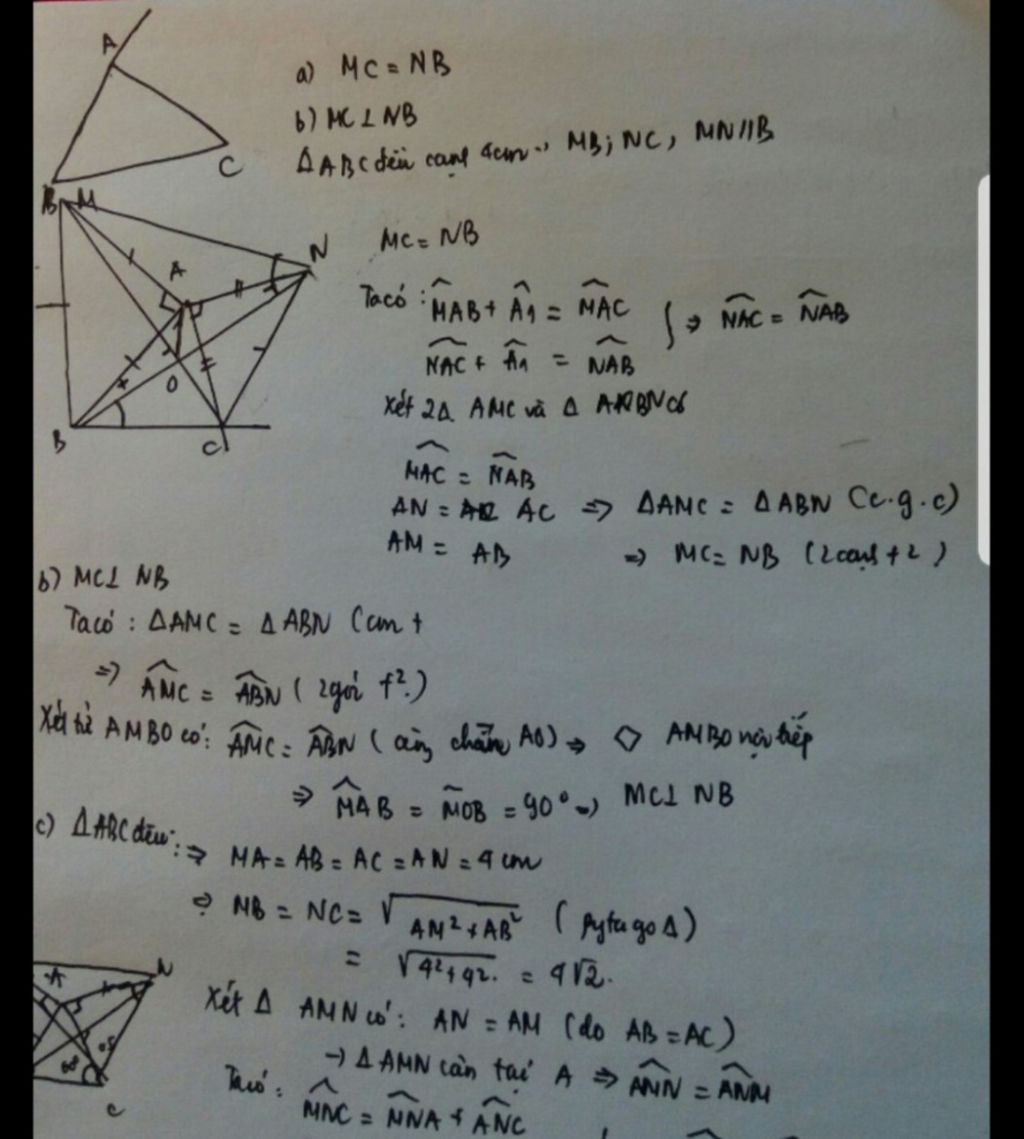 A
C
B
a) MC = NB
b) MC ⊥ NB
ΔABC đều cạnh 4cm MB; NC, MN//B
M
N
A
O
B
C
MC = NB
Ta có: MAB + A1 = MAC
NAC + A1 = NAB
} ⇒ NAC = NAB
Xét 2Δ AMC và Δ
MAC = NAB
AN = AC ⇒ ΔAMC = ΔABN (c.g.c)
AM = AB ⇒ MC = NB (2 cạnh t2)
b) MC ⊥ NB
Ta có: ΔAMC = ΔABN (cm t
⇒ AMC = ABN (2 góc t2.)
Xét tứ AMBO có: AMC = ABN (cùng chắn AO) ⇒ ◇ AMBO nội tiếp
⇒ MAB = MOB = 90° ⇒ MC ⊥ NB
c) ΔABC đều: ⇒ MA = AB = AC = AN = 4 cm
⇒ MB = NC = √AM² + AB² (Pytago Δ)
= √4² + 4². = 4√2.
Xét Δ AMN có: AN = AM (do AB = AC)
→ Δ AMN cân tại A ⇒ AMN = ANM
Ta có: MNC = MNA + ANC
A
N
C